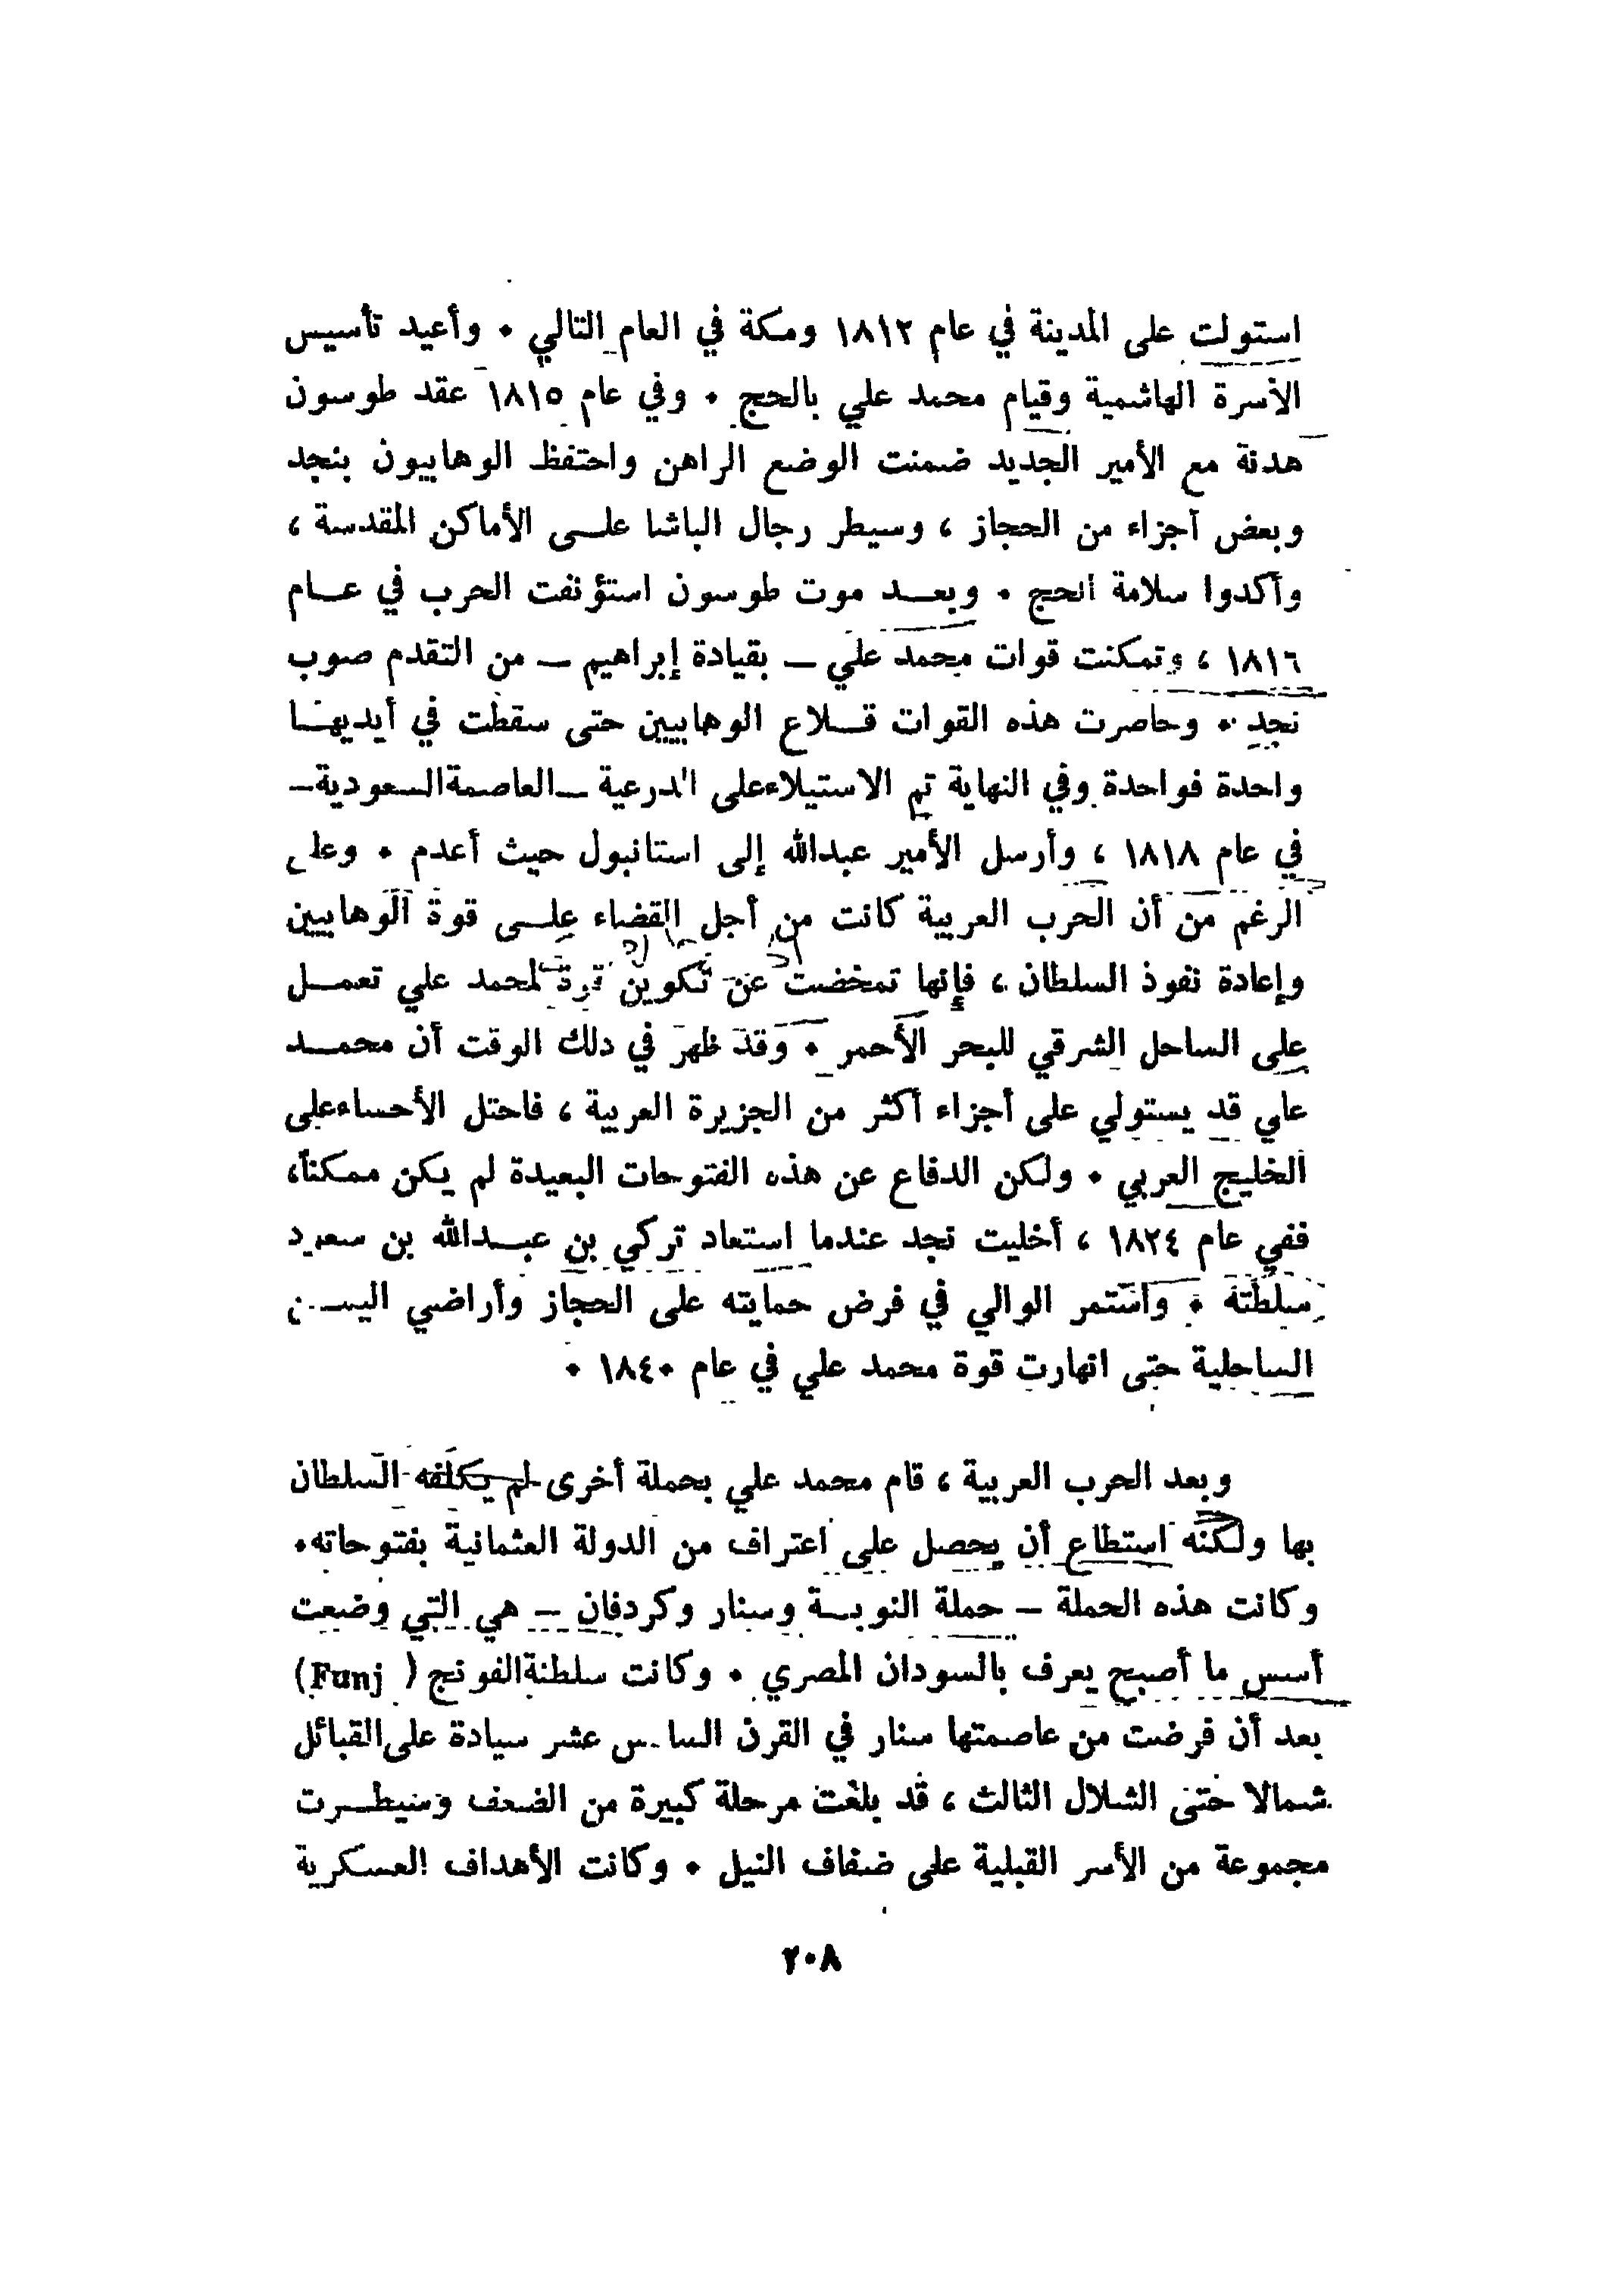 استولت على المدينة في عام ١٨١٢ ومكة في العام التالي ٠ وأعيد تأسيس
الأسرة الهاشمية وقيام محمد علي بالحج ٠ وفي عام ١٨١٥ عقد طوسون
هدنة مع الأمير الجديد ضمنت الوضع الراهن واحتفظ الوهابيون بنجد
وبعض أجزاء من الحجاز ، وسيطر رجال الباشا علـى الأماكن المقدسة ،
وأكدوا سلامة الحج ٠ وبعـد موت طوسون استؤنفت الحرب في عـام
١٨١٦ ، وتمكنت قوات محمد علي – بقيادة إبراهيم – من التقدم صوب
نجد ٠ وحاصرت هذه القوات قـلاع الوهابيين حتى سقطت في أيديهـا
واحدة فواحدة وفي النهاية تم الاستيلاء على الدرعية –العاصمة السعودية–
في عام ١٨١٨ ، وأرسل الأمير عبدالله إلى استانبول حيث أعدم ٠ وعلى
الرغم من أن الحرب العربية كانت من أجل القضاء علـى قوة الوهابيين
وإعادة نفوذ السلطان ، فإنها تمخضت عن تكوين لمحمد علي تعمـل
على الساحل الشرقي للبحر الأحمر ٠ وقد ظهر في ذلك الوقت أن محمـد
علي قد يستولي على أجزاء أكثر من الجزيرة العربية ، فاحتل الأحساء على
الخليج العربي ٠ ولكن الدفاع عن هذه الفتوحات البعيدة لم يكن ممكناً،
ففي عام ١٨٢٤ ، أخليت نجد عندما استعاد تركي بن عبـدالله بن سعود
سلطته ٠ واستمر الوالي في فرض حمايته على الحجاز وأراضي اليمـن
الساحلية حتى انهارت قوة محمد علي في عام ١٨٤٠ ٠
وبعد الحرب العربية ، قام محمد علي بحملة أخرى لم يكلفه السلطان
بها ولكنه استطاع أن يحصل على اعتراف من الدولة العثمانية بفتوحاته٠
وكانت هذه الحملة – حملة النوبـة وسنار وكردفان – هي التي وضعت
أسس ما أصبح يعرف بالسودان المصري ٠ وكانت سلطنة الفونج ( Funj)
بعد أن فرضت من عاصمتها سنار في القرن السادس عشر سيادة على القبائل
شمالا حتى الشلال الثالث ، قد بلغت مرحلة كبيرة من الضعف وسيطـرت
مجموعة من الأسر القبلية على ضفاف النيل ٠ وكانت الأهداف العسكرية
٢٠٨